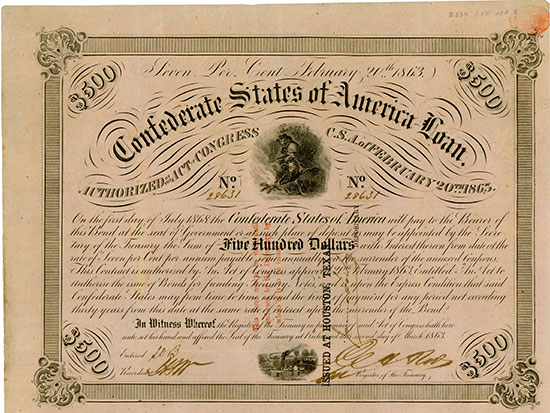 (Seven Per Cent February 20th 1863.)
$500
$500
Confederate States of America Loan.
AUTHORIZED BY ACT OF CONGRESS C.S.A. of FEBRUARY 20TH 1863.
No. 28631
No. 28631
On the first day of July 1868 the Confederate States of America will pay to the Bearer of
this Bond at the seat of Government or at such place of deposit as may be appointed by the Secre
tary of the Treasury the Sum of Five Hundred Dollars with Interest thereon from date at the
rate of Seven per Cent per annum surrender of the annexed Coupons.
This Contract is authorized by An Act of Congress approved February 1863 Entitled An Act to
authorize the issue of Bonds for funding Treasury Notes upon the Express Condition that said
Confederate States may from time to time extend the time of payment for any period not exceeding
thirty years from this date at the same rate of Interest upon surrender of the Bond.
In Witness Whereof the Register of the Treasury in pursuance of said Act of Congress hath here
unto set his hand and affixed the Seal of the Treasury at Richmond this second day of March 1863.
Entered
Recorded
Register of the Treasury
ISSUED AT HOUSTON, TEXAS
$500
$500